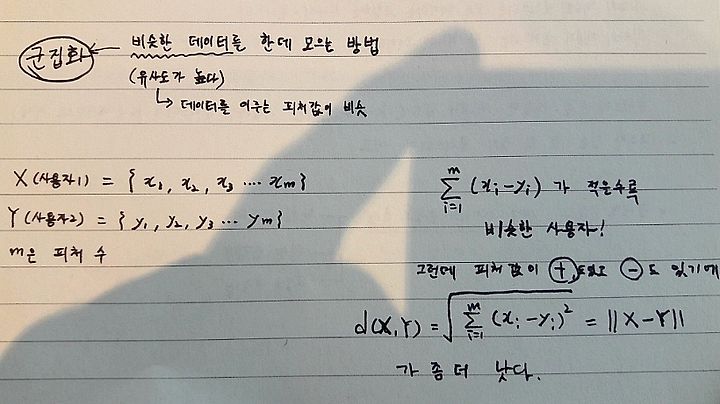 군집화 ← 비슷한 데이터를 한데 모으는 방법
(유사도가 높다)
↳ 데이터를 이루는 피처값이 비슷
X (사용자1) = { x₁, x₂, x₃ ‥‥ xm }
Y (사용자2) = { y₁, y₂, y₃ ‥‥ ym }
m은 피처 수
m∑i=1 (xi - yi) 가 적을수록
비슷한 사용자!
그런데 피처값이 + 도 있고 - 도 있기에
d(X,Y) = √(m∑i=1 (xi - yi)²) = ||X-Y||
가 좀 더 낫다.